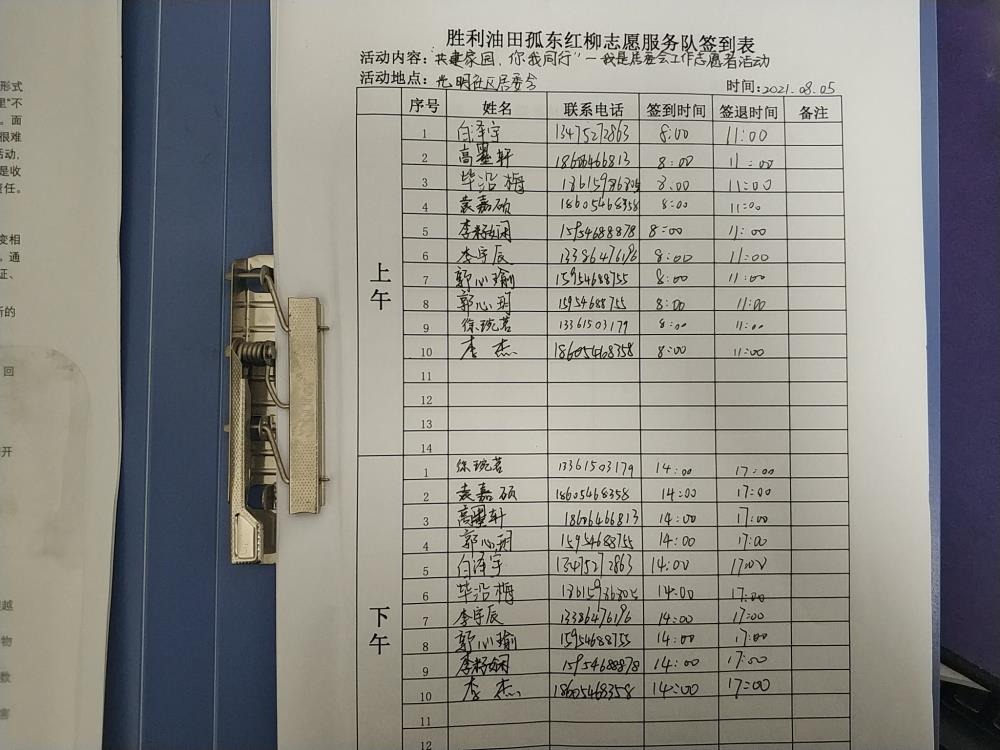 胜利油田孤东红柳志愿服务队签到表
活动内容："共建家园，你我同行"—我是居委会工作志愿者活动
活动地点：光明社区居委会 时间：2021.08.05
序号 姓名 联系电话 签到时间 签退时间 备注
上午
1 白泽宇 13475272863 8:00 11:00
2 高墨轩 18606466813 8:00 11:00
3 毕沿梅 8:00 11:00
4 袁嘉硕 18605468358 8:00 11:00
5 李籽娴 15954688878 8:00 11:00
6 李宇辰 13386476196 8:00 11:00
7 郭心瑜 15954688755 8:00 11:00
8 郭心玥 15954688755 8:00 11:00
9 徐琬茗 13361503179 8:00 11:00
10 李杰 18605468358 8:00 11:00
11
12
13
14
下午
1 徐琬茗 13361503179 14:00 17:00
2 袁嘉硕 18605468358 14:00 17:00
3 高墨轩 18606466813 14:00 17:00
4 郭心玥 15954688755 14:00 17:00
5 白泽宇 13475272863 14:00 17:00
6 毕沿梅 14:00 17:00
7 李宇辰 13386476196 14:00 17:00
8 郭心瑜 15954688755 14:00 17:00
9 李籽娴 15954688878 14:00 17:00
10 李杰 18605468358 14:00 17:00
11
12
形式
里"不
。面
很难
活动，
是收
责任。
变相
，通
证、
新的
回
开
越
物
数
害